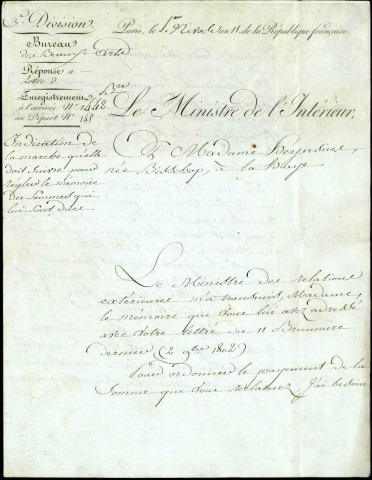 3e. Division.
Bureau
des Beaux Arts
Réponse a
Lettre D
Enregistrement
à l'arrivée No. 1442 Bre
au Départ No. 145
Indication de
la marche qu'elle
doit suivre pour
regler le mémoire
des sommes qui
lui sont dues
Paris, le 1er Nivose an 11 de la République française.
Le Ministre de l'Intérieur,
A Madame
née Bisschop, a la haye
Le Ministre des relations
extérieures m'a transmis, Madame,
le mémoire que vous lui avez adressé
avec votre lettre du 11 Brumaire
dernier (2 9bre 1802)
Pour ordonner le payement de la
somme que vous reclamez, j'ai besoin